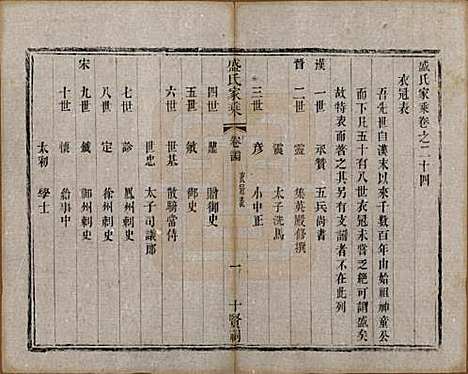 盛氏家乘卷之二十四
衣冠表
吾先世自漢末以來千數百年由始祖神童公
而下凡五十有八世衣冠未嘗之絕可謂盛矣
故特表而著之其另有支譜者不在此列
漢 一世 承贊 五兵尚書
晉 二世 集英殿修撰
震 太子洗馬
三世 彥 小中正
盛氏家乘 卷二十四 衣冠表 一 十賢祠
四世 贈御史
五世 敏
六世 世基 散騎常侍
世忠 太子司議郎
七世 診 鳳州刺史
八世 定 徐州刺史
宋 九世 鐵 鄆州刺史
十世 懷 給事中
太初 學士